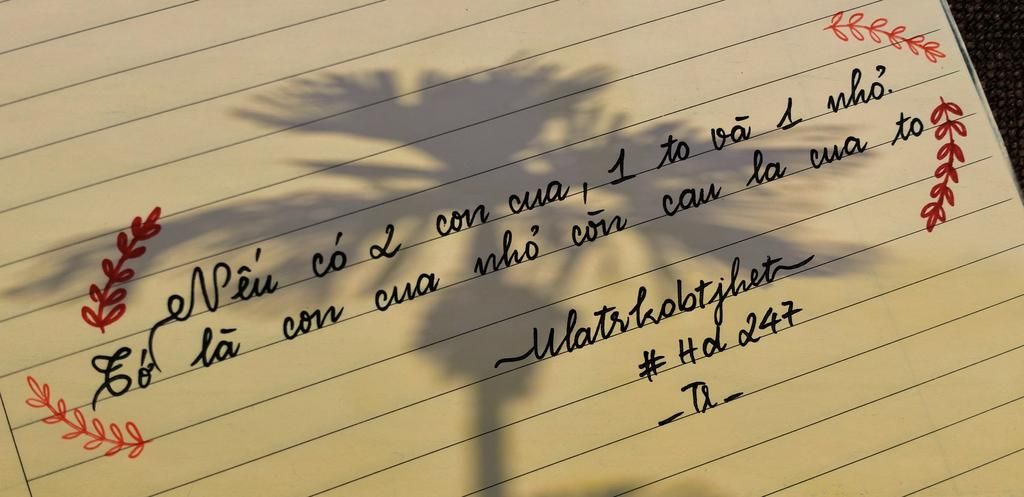 Nếu có 2 con cua, 1 to và 1 nhỏ.
Tớ là con cua nhỏ còn cau la cua to
Ulatrkobtjhet
# Hd 247
_ Tz _